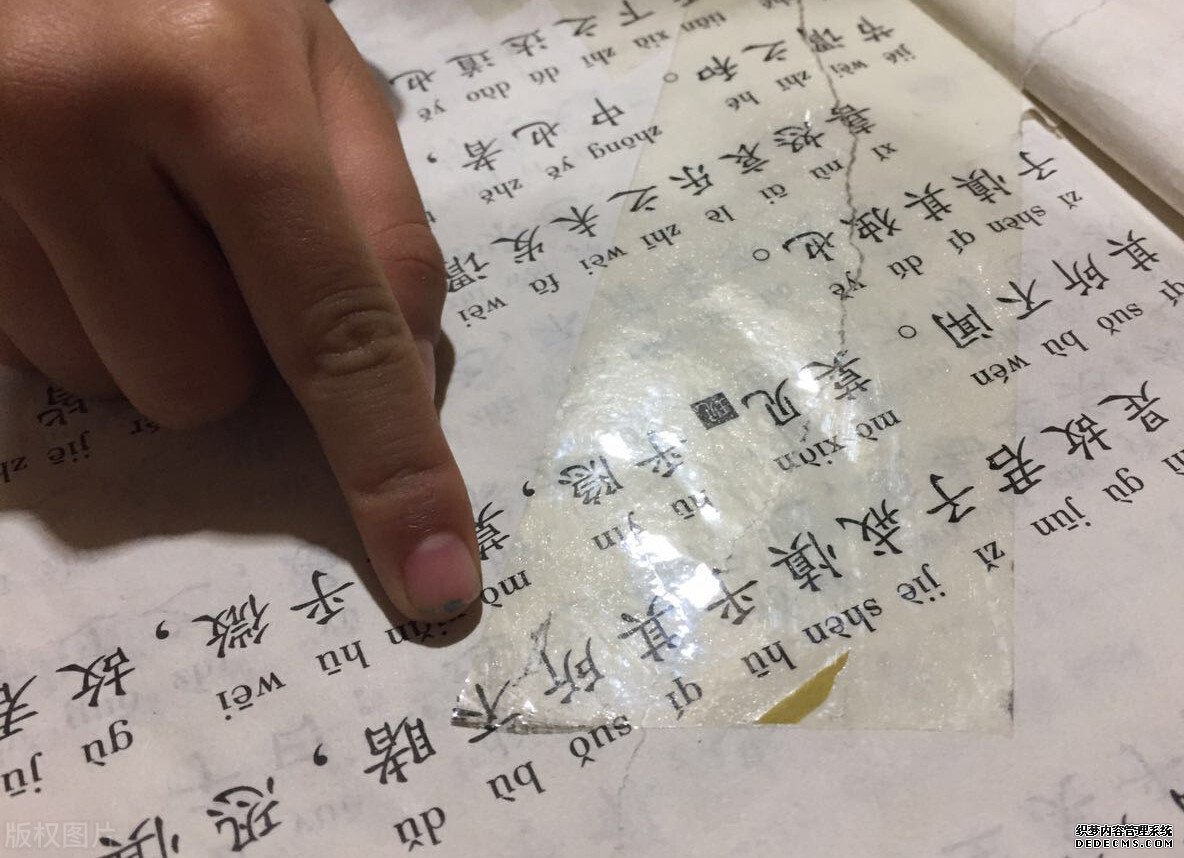 gù jūn zǐ jiè shèn hū qí suǒ bù dǔ
是故君子戒慎乎其所不睹，恐惧
qí suǒ bù wén mò xiàn hū yǐn mò xiǎn hū wēi gù jū
其所不闻。莫见乎隐，莫乎微，故君
zǐ shèn qí dú yě xǐ nù āi lè zhī wèi fā wèi jiē
子慎其独也。喜怒哀乐之未发谓皆
jié wèi zhī hé zhōng yě zhě
节谓之和。中也者，
tiān xià zhī dá dào yě
下之达道也
版权图片
织梦内容管理系统
DEDECMS.COM